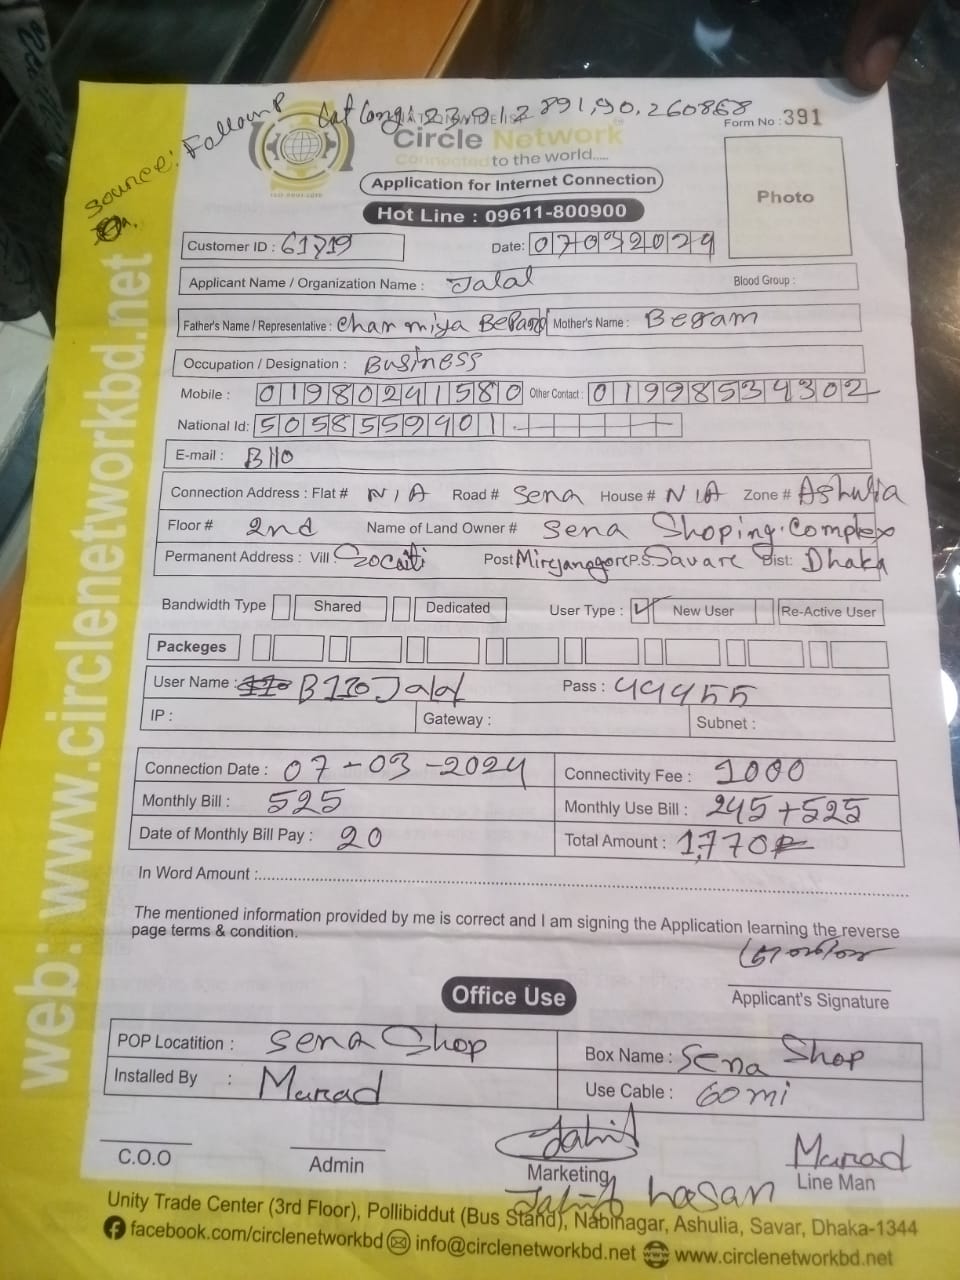 Source: Follow P Lat Long: 23.912891,90.260868
NATIONWIDE ISP
Form No : 391
Circle Network
Connected to the world.....
ISO 9001:2015
Application for Internet Connection
Photo
Hot Line : 09611-800900
Customer ID : 61719 Date: 07032024
Applicant Name / Organization Name : Jalal Blood Group :
Father's Name / Representative : Chan miya Bepari Mother's Name : Begam
Occupation / Designation : Business
Mobile : 01980241580 Other Contact : 01998534302
National Id: 5058559401
E-mail : B110
Connection Address : Flat # N/A Road # Sena House # N/A Zone # Ashulia
Floor # 2nd Name of Land Owner # Sena Shoping Complex
Permanent Address : Vill : Socaiti Post Mirjanagor P.S. Savar Dist: Dhaka
Bandwidth Type Shared Dedicated User Type : ✓ New User Re-Active User
Packeges
User Name : B110Jalal Pass : 44455
IP : Gateway : Subnet :
Connection Date : 07-03-2024 Connectivity Fee : 1000
Monthly Bill : 525 Monthly Use Bill : 245+525
Date of Monthly Bill Pay : 20 Total Amount : 1,770
In Word Amount :
The mentioned information provided by me is correct and I am signing the Application learning the reverse
page terms & condition.
Applicant's Signature
Office Use
POP Locatition : Sena Shop Box Name : Sena Shop
Installed By : Murad Use Cable : 60 mi
Jahid Murad
C.O.O Admin Marketing Line Man
Jahid hasan
Unity Trade Center (3rd Floor), Pollibiddut (Bus Stand), Nabinagar, Ashulia, Savar, Dhaka-1344
facebook.com/circlenetworkbd info@circlenetworkbd.net www.circlenetworkbd.net
web: www.circlenetworkbd.net